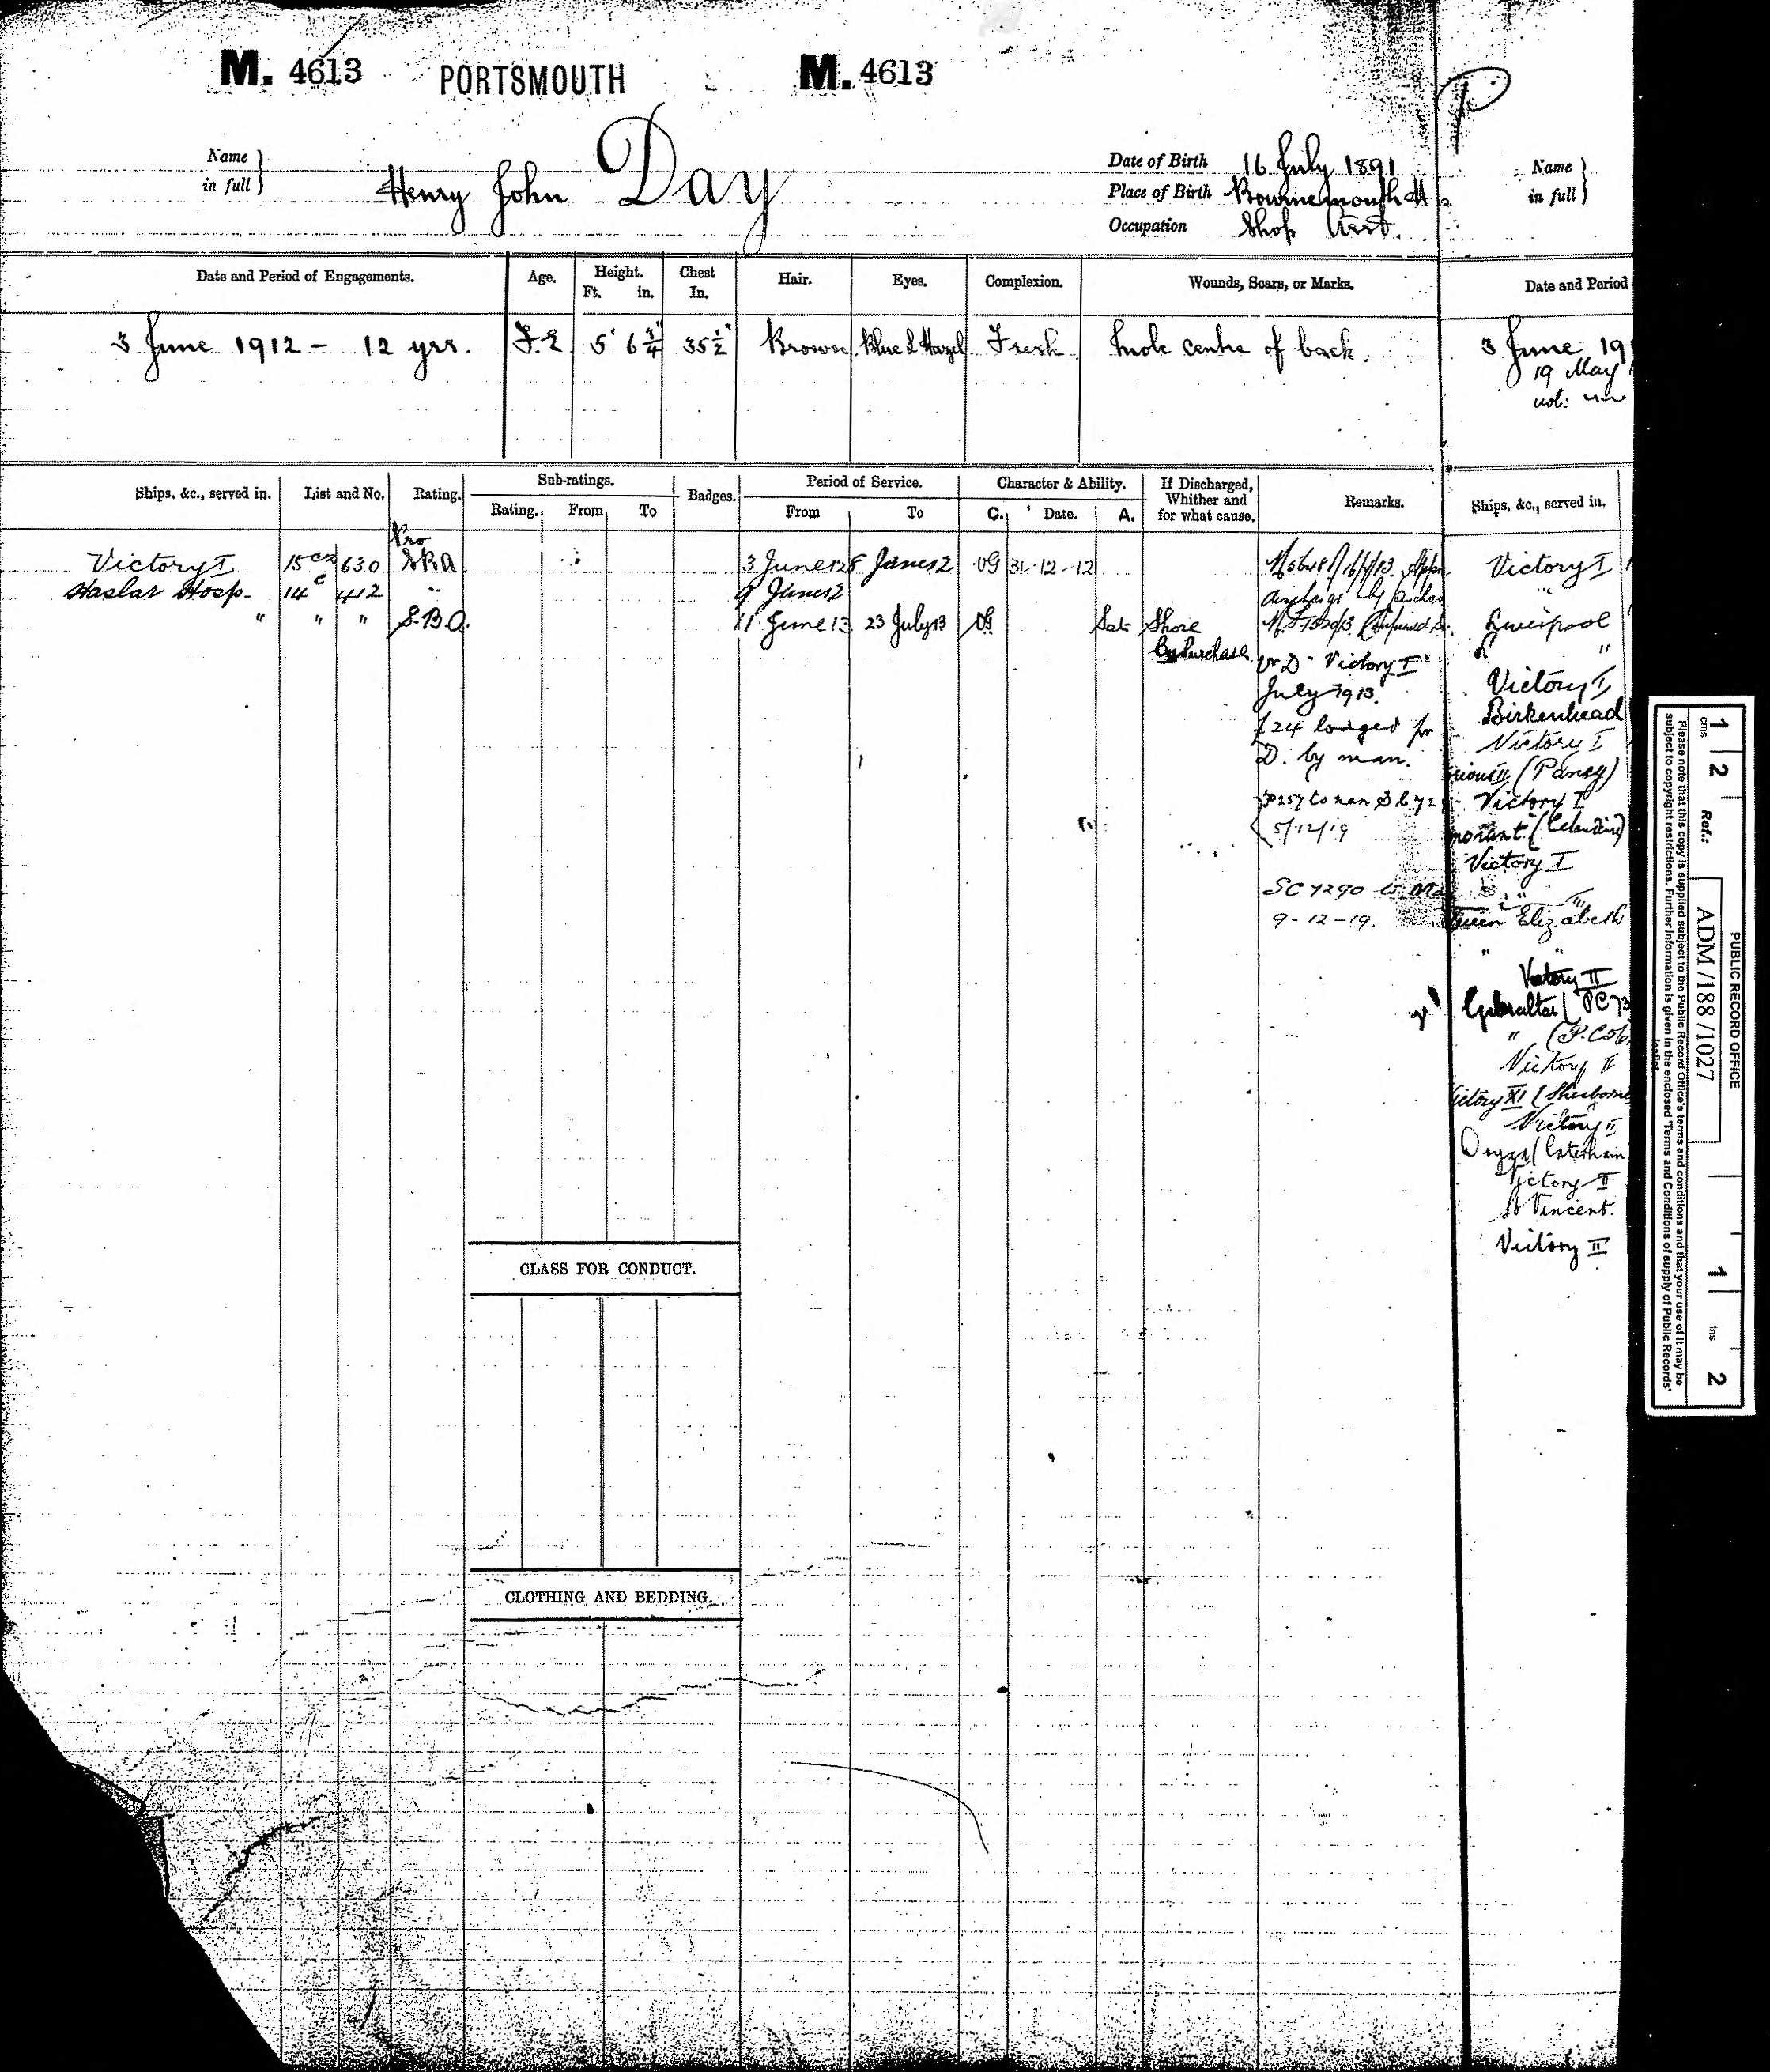 M. 4613 PORTSMOUTH M. 4613
P
Name in full } Henry John Day
Date of Birth 16 July 1891
Place of Birth Bournemouth
Occupation Shop Asst.
Name in full }
Date and Period of Engagements. Age. Height. Ft. in. Chest In. Hair. Eyes. Complexion. Wounds, Scars, or Marks. Date and Period
3 June 1912 - 12 yrs. 5' 6 3/4" 35 1/2" Brown Blue & Hazel Fresh Mole centre of back. 3 June 19
19 May
Ships, &c., served in. List and No. Rating. Sub-ratings. Rating. From To Badges. Period of Service. From To Character & Ability. C. Date. A. If Discharged, Whither and for what cause. Remarks. Ships, &c., served in.
Pro
Victory I 15 630 SBA 3 June 12 8 June 12 VG 31-12-12 Victory I
Haslar Hosp. 14c 412 " 9 June 12 "
" " " S.B.A. 11 June 13 23 July 13 VG Sat Shore Liverpool
By Purchase "
Victory I
July 1913. Victory I
£24 lodged for Birkenhead
D. by man. Victory I
(Pansy)
Victory I
5/12/19
Victory I
SC 7290
9-12-19. Elizabeth
" "
Victory II
Gibraltar (PC 73
" (P.C 56
Victory II
ictory XI (Sherborne
Victory II
(Caterham
Victory II
St Vincent.
Victory II
CLASS FOR CONDUCT.
CLOTHING AND BEDDING.
PUBLIC RECORD OFFICE
1 2 1 2
cms Ref.: ADM/188/1027 ins
Please note that this copy is supplied subject to the Public Record Office's terms and conditions and that your use of it may be
subject to copyright restrictions. Further information is given in the enclosed 'Terms and Conditions of supply of Public Records'
leaflet